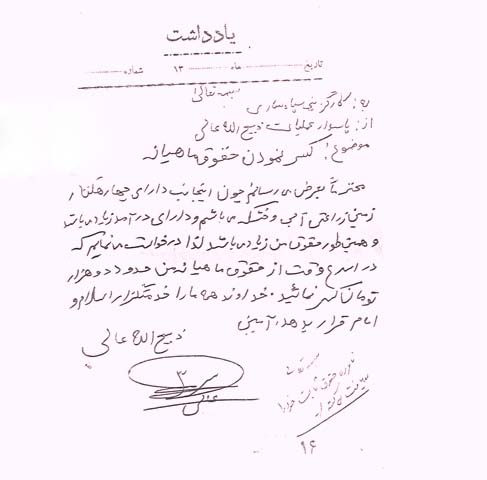 یادداشت
تاریخ ماه ۱۳ شماره
بسمه تعالی
به: کارگزینی سپاه ساری
از: پاسدار عملیات ذبیح الله عالی
موضوع: کسر نمودن حقوق ماهیانه
محترماً بعرض می رسانم چون اینجانب دارای چهار هکتار
زمین زراعتی آبی و خشکه می باشم و دارای درآمد زیاد می باشد
و همینطور حقوق من زیاد می باشد لذا درخواست می نمایم که
در اسرع وقت از حقوق ماهیانه من حدود دو هزار
تومان کسر نمائید. خداوند همه ما را خدمتگزار اسلام و
امام قرار بدهد. آمین
ذبیح الله عالی
عالی
بسمه تعالی
حقوق ثابت
۹۶